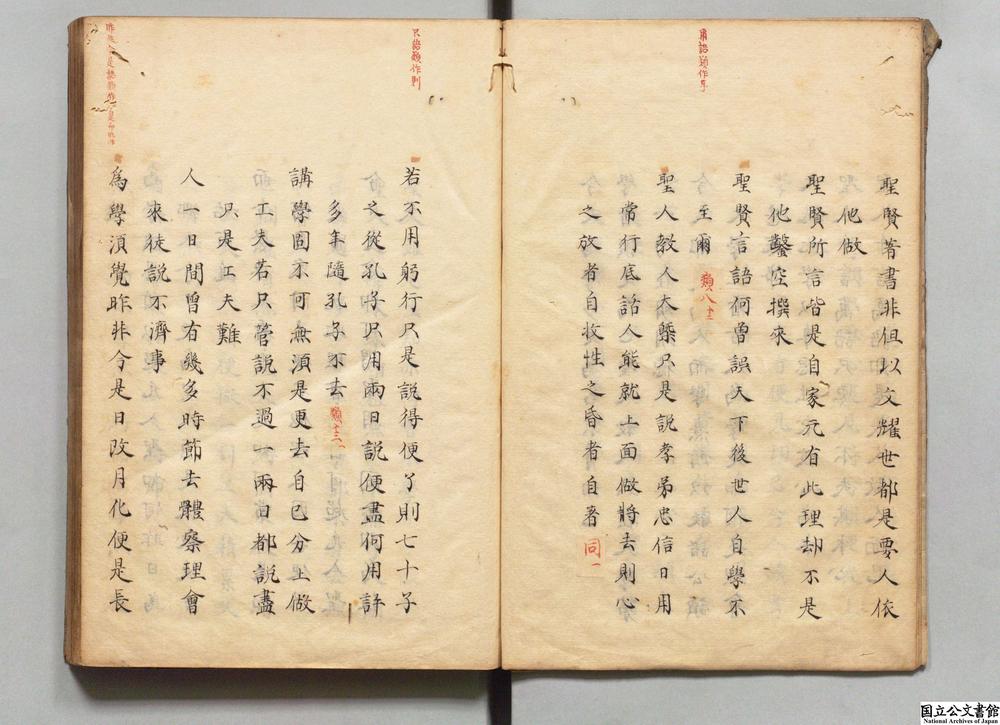 聖賢著書非但以文耀世都是要人依
他做
聖賢所言皆是自家元有此理却不是
他鑿空撰來
聖賢言語何曾誤天下後世人自學不
至爾 類八十三
聖人教人大槩只是說孝弟忠信日用
常行底話人能就上面做將去則心
之放者自收性之昏者自著 同一
若不用躬行只是說得便了則七十子
之從孔子只用兩日說便盡何用許
多年隨孔子不去 類十三
講學固不可無須是更去自己分上做
工夫若只管說不過一兩日都說盡
只是工夫難
人一日間曾有幾多時節去體察理會
來徒說不濟事
為學須覺昨非今是日改月化便是長
只語類作則
國立公文書館
National Archives of Japan